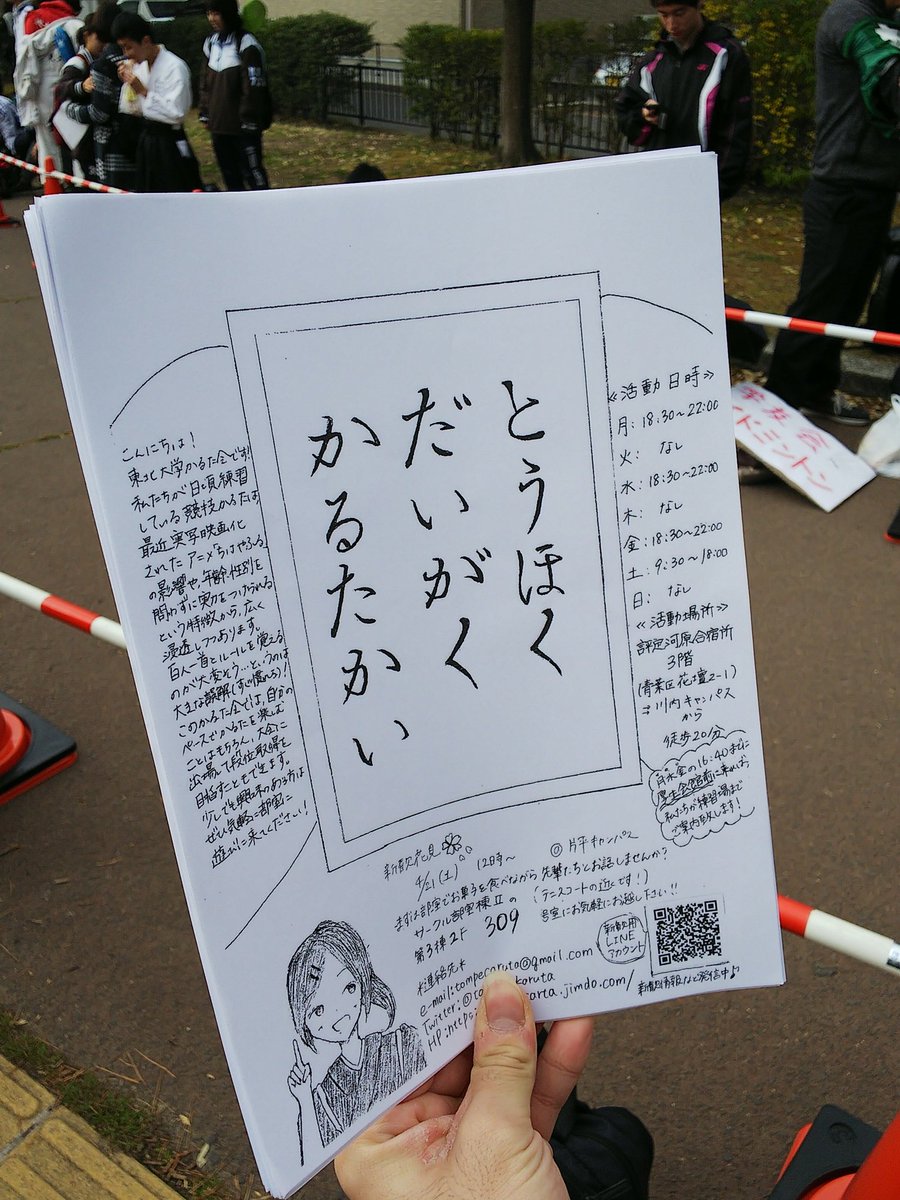 とうほく
だいがく
かるたかい
≪活動日時≫
月：18:30～22:00
火： なし
水：18:30～22:00
木： なし
金：18:30～22:00
土：9:30～18:00
日： なし
≪活動場所≫
評定河原合宿所
3階
(青葉区花壇2-1)
⇒川内キャンパス
から
徒歩20分
月水金の16:40までに
厚生会館前に来れば
私たちが練習場まで
ご案内致します！
こんにちは！
東北大学かるた会です！
私たちが日頃練習
している競技かるたは
最近実写映画化
されたアニメ「ちはやふる」
の影響や、年齢・性別を
問わずに実力をつけられる
という特徴から、広く
浸透しつつあります。
百人一首とルールを覚える
のが大変そう…というのは
大きな誤解(すぐ慣れる)！
このかるた会では、自分の
ペースでかるたを楽しむ
ことはもちろん、大会に
出場して段位取得を
目指すこともできます。
少しでも興味のある方は
ぜひ気軽に部室に
遊びに来てください！
新歓花見
4/21(土) 12時～ ◎片平キャンパス
(テニスコートの近くです！)
まずは部室でお菓子を食べながら先輩たちとお話しませんか？
サークル部室棟Ⅱの
第3棟2F 309 号室にお気軽にお越し下さい！！
*連絡先*
e-mail:tompecaruta@gmail.com
Twitter:@ karuta
HP:https: karta.jimdo.com/
新歓用
LINE
アカウント
新歓情報など発信中♪
ドミントン